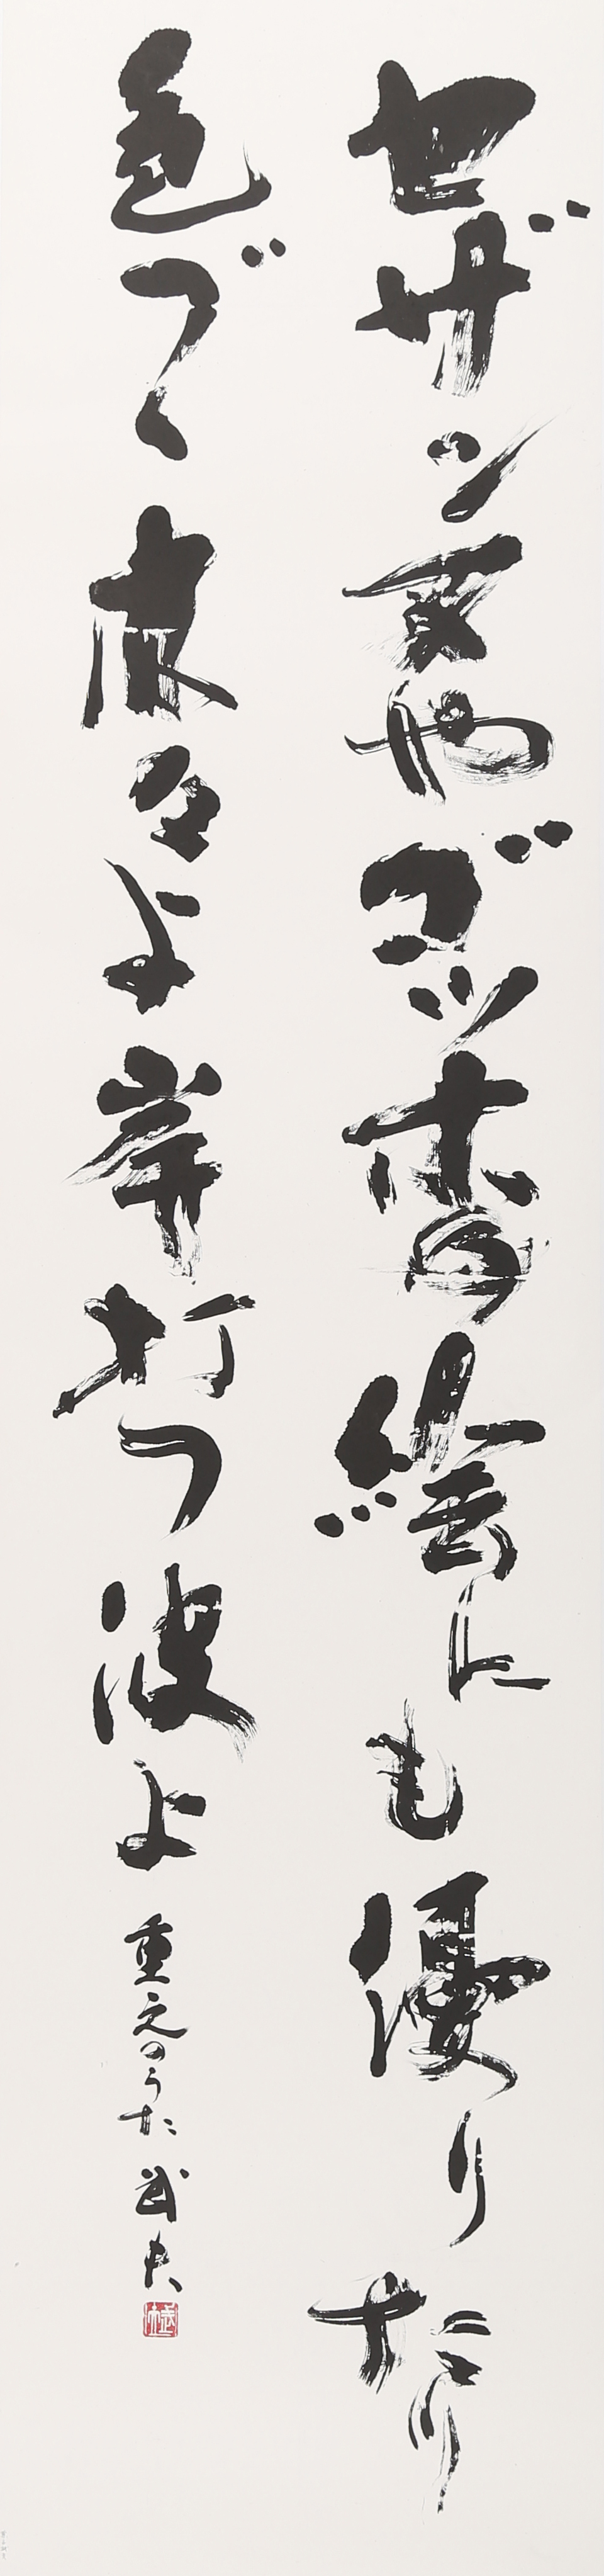 セザンヌやゴッホの絵にも優りたり
色づく木々よ岸打つ波よ 重之のうた 武夫